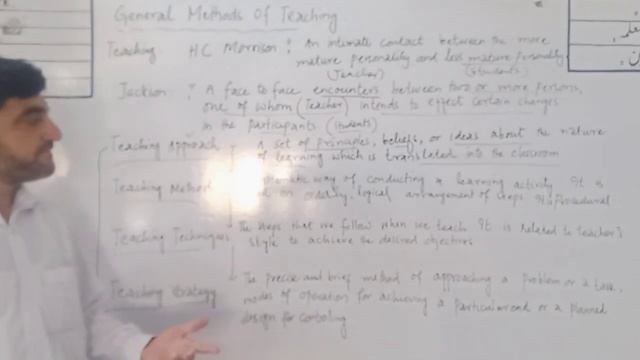 General Methods Of Teaching
Teaching HC Morrison: An intimate contact between the more
mature personality and less mature personality
(Teacher) (Students)
Jackson: A face to face encounters between two or more persons,
one of whom (Teacher) intends to effect certain changes
in the participants (Students)
Teaching Approach A set of principles, beliefs, or ideas about the nature
of learning which is translated into the classroom
Teaching Method way of conducting a learning activity. It is
on orderly, logical arrangement of steps. It is Procedural
Teaching Techniques The steps that we follow when we teach It is related to teacher's
style to achieve the desired objectives
Teaching Strategy The precise and brief method of approaching a problem or a task,
modes of operation for achieving a particular end or a planned
design for